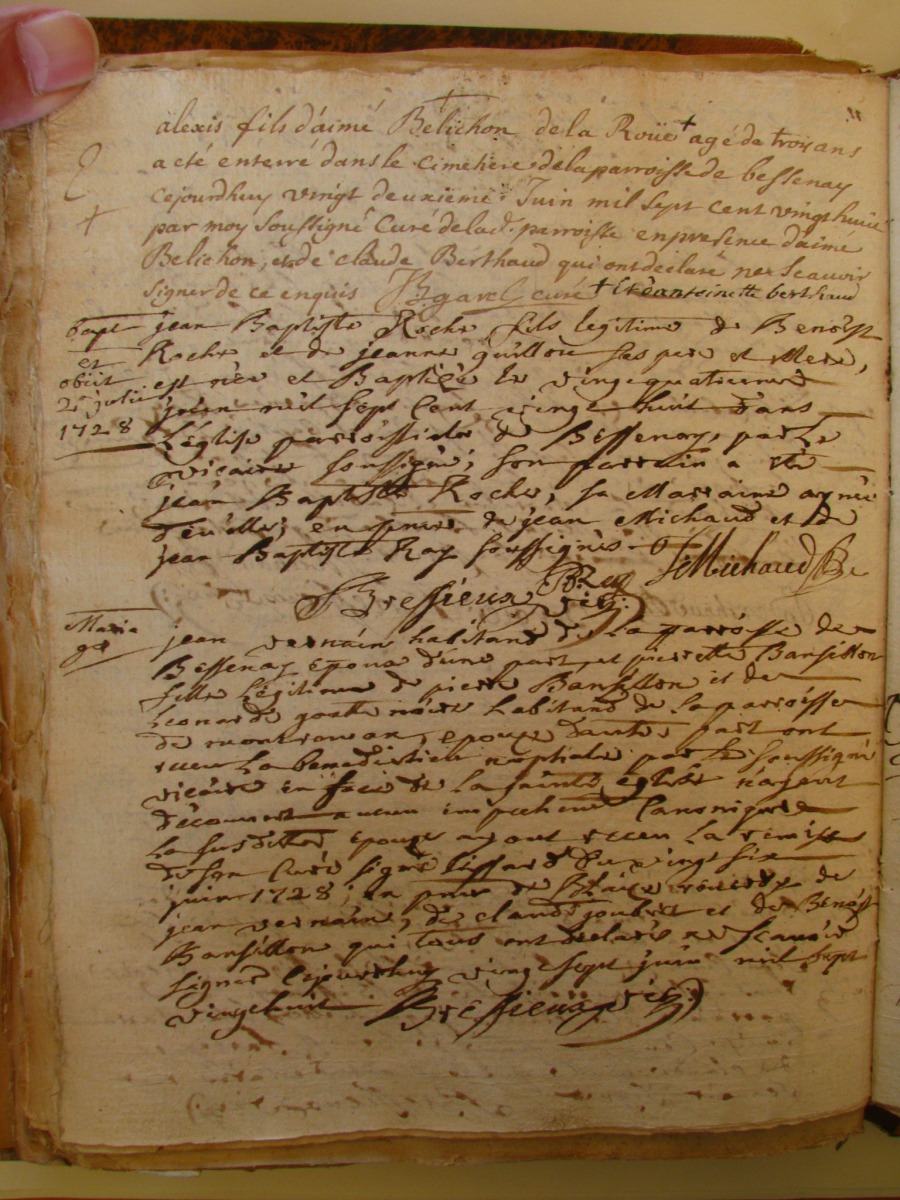 alexis fils d'aimé Belichon de la Roüe + agé de trois ans
a eté enterré dans le cimetiere de la parroisse de bessenay
cejourdhuy vingt deuxieme Juin mil sept cent vingt huit
par moy soussigné Curé de lad. parroisse en presence d'aimé
Belichon, et de claude Berthaud qui ont declaré ne sçavoir
signer de ce enquis curé + et d'antoinette berthaud
Bapt
et
obiit
julii
1728
jean Baptiste Roche fils legitime de Benoist
Roche et de jeanne guillon ses pere et Mere,
est née et Baptisé le vingt quatrieme
juin mil sept cent vingt huit dans
l'église parroissiale de Bessenay, par le
vicaire soussigné; son parrain a été
jean Baptiste Roche, sa Marraine
en pnce de jean Michaud et de
jean Baptiste Ray soussignés
J Michaud
Bressieux vic:
Maria
ge
jean vernain habitant de la parroisse de
Bessenay epoux d'une part, et pierrette Bansillon
fille légitime de pierre Bansillon et de
Leonarde goutte noire habitans de la parroisse
de montroman, epouse d'autre part ont
receu la benediction nuptiale par le soussigné
vicaire en face de la sainte église n'ayant
découvert aucun empechement Canonique
la susditte epouse ayant receu la remise
de son Curé signé tissard du vingt six
juin 1728; en pnce de Blaise de
jean vernain, de claude joubert et de Benoist
Bansillon qui tous ont declarés ne scavoir
signer Cejourdhuy vingt sept juin mil sept
vingt huit Bressieux vic: